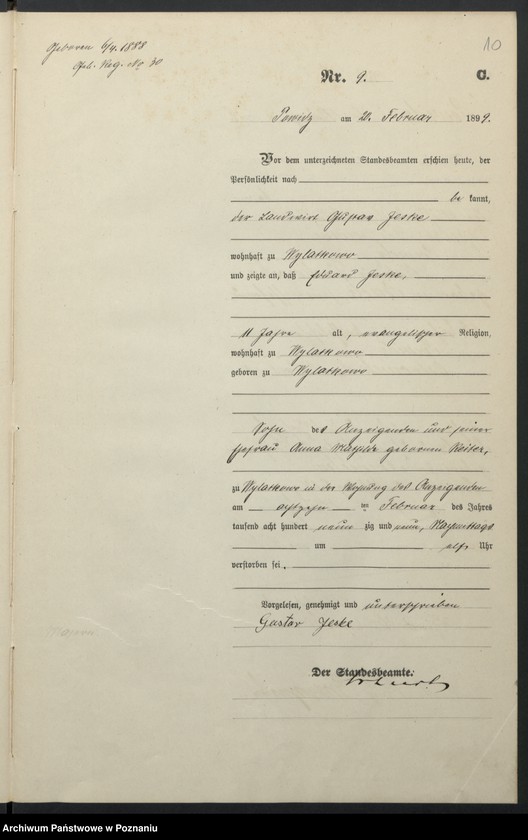 10
Geboren 6/4. 1888
Geb. Reg. No 30
Nr. 9.
C.
Powidz am 20. Februar 1899.
Vor dem unterzeichneten Standesbeamten erschien heute, der
Persönlichkeit nach
be kannt,
der Landwirt Gustav Jeske
wohnhaft zu Wylatkowo
und zeigte an, daß Eduard Jeske,
11 Jahre alt, evangelischer Religion,
wohnhaft zu Wylatkowo
geboren zu Wylatkowo
Sohn des Anzeigenden und seiner
Ehefrau Anna Mathilde geborenen
zu Wylatkowo in der Wohnung des Anzeigenden
am achtzehn ten Februar des Jahres
tausend acht hundert neun zig und neun, Nachmittags
um elf Uhr
verstorben sei.
Vorgelesen, genehmigt und unterschrieben
Gustav Jeske
Der Standesbeamte.
Archiwum Państwowe w Poznaniu